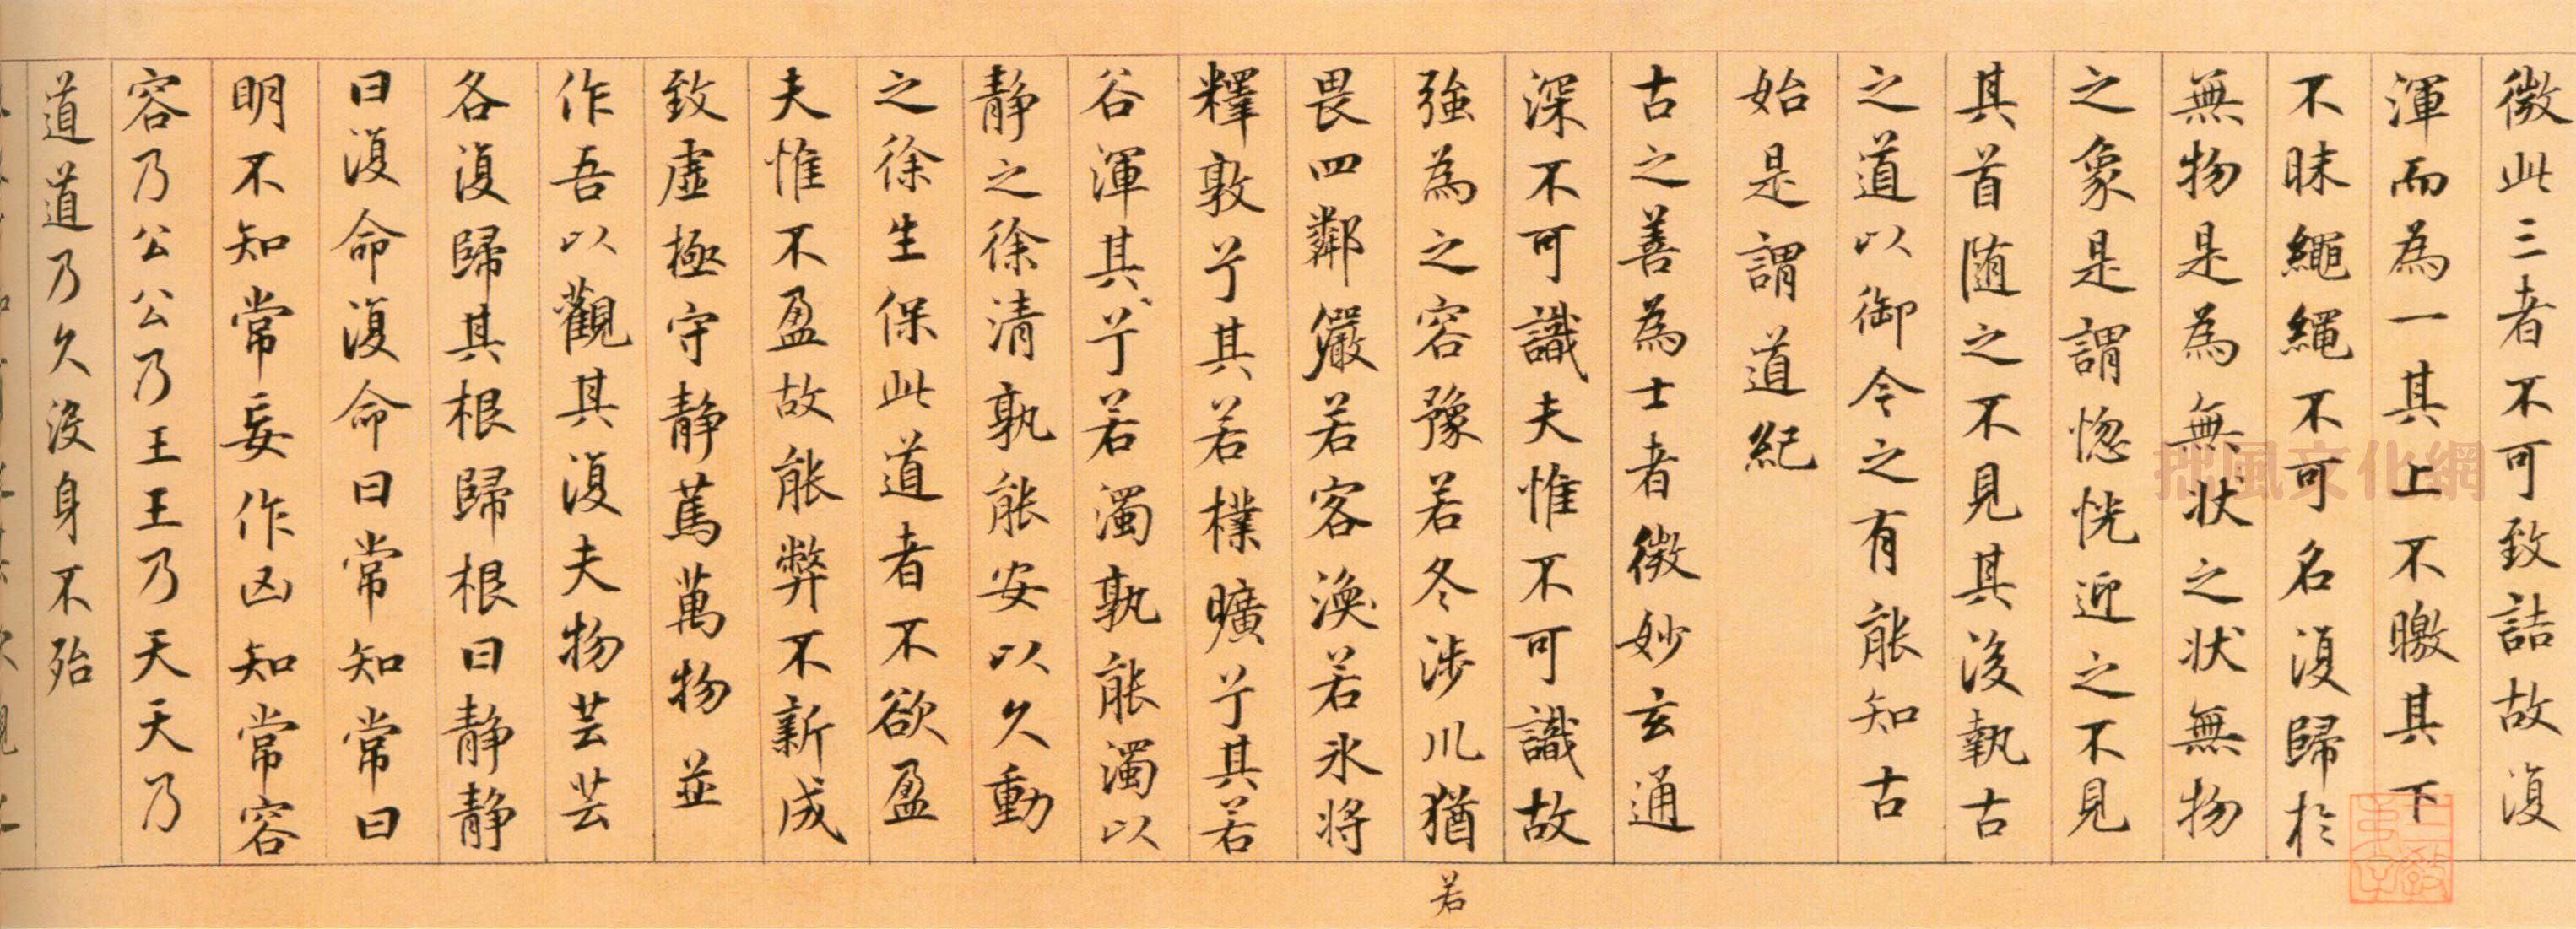 微此三者不可致詰故復
渾而為一其上不曒其下
不昧繩繩不可名復歸於
無物是為無狀之狀無物
之象是謂惚恍迎之不見
其首随之不見其後執古
之道以御今之有能知古
始是謂道紀
古之善為士者微妙玄通
深不可識夫惟不可識故
強為之容豫若冬涉川猶
若
畏四鄰儼若客渙若氷将
釋敦兮其若樸曠兮其若
谷渾其兮若濁孰能濁以
静之徐清孰能安以久動
之徐生保此道者不欲盈
夫惟不盈故能弊不新成
致虛極守静篤萬物並
作吾以觀其復夫物芸芸
各復歸其根歸根曰静静
曰復命復命曰常知常曰
明不知常妄作凶知常容
容乃公公乃王王乃天天乃
道道乃久沒身不殆
拙風文化網